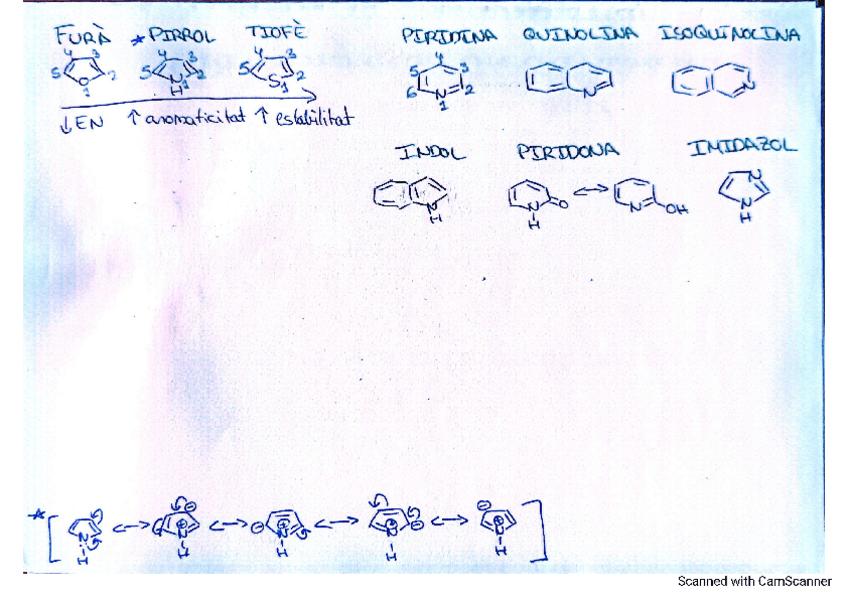 FURÀ *PIRROL TIOFÈ PIRIDINA QUINOLINA ISOQUINOLINA
4 3 4 3 4 3 4
5 2 5 2 5 2 5 3
O N S 6 N 2 N N
1 H 1 1 1
↓EN ↑ aromaticitat ↑ estabilitat
INDOL PIRIDONA IMIDAZOL
N
N N O ↔ N OH N
H H H
* [ ↔ ⊖ ↔ ⊖ ↔ ⊖ ↔ ⊖ ]
N N N N N
H H H H H
Scanned with CamScanner